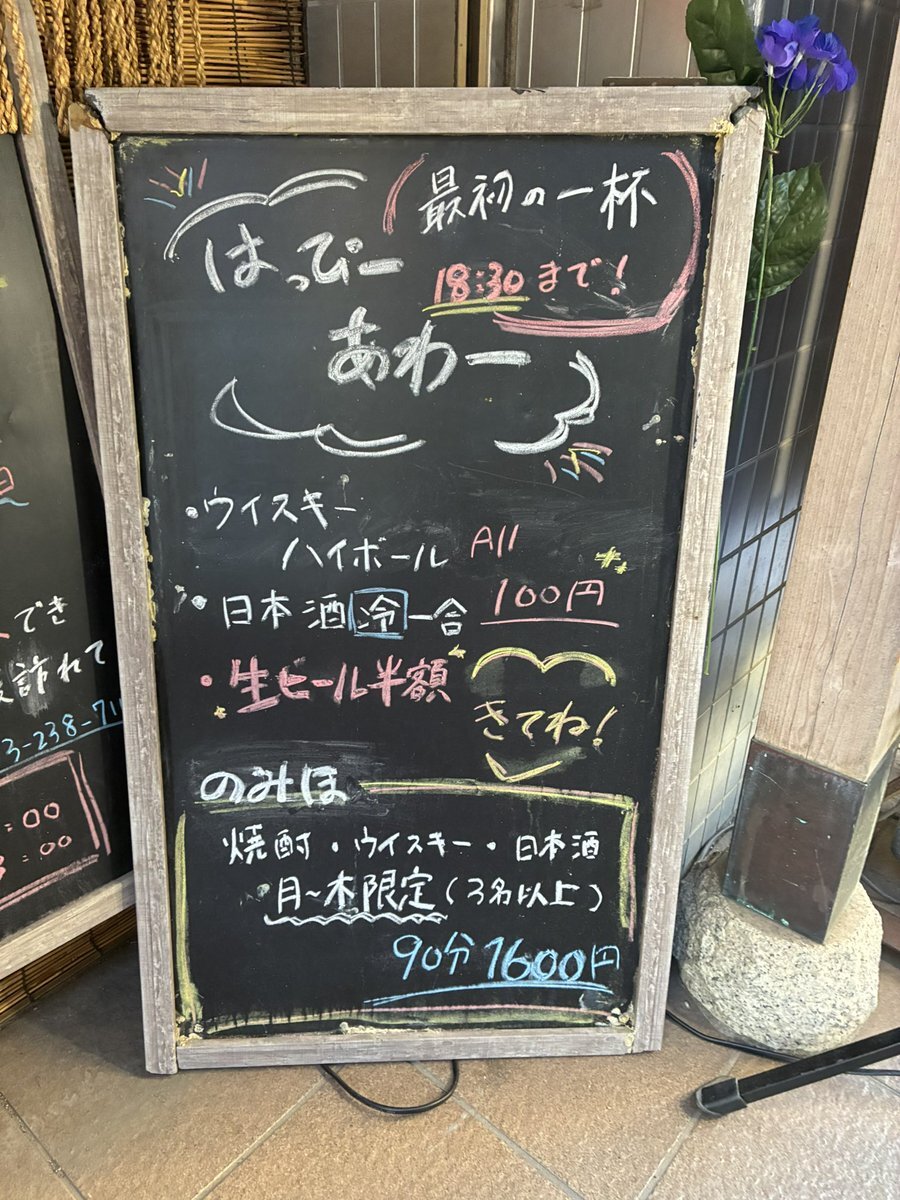 最初の一杯
はっぴー
18:30まで!
あわー
・ウイスキー
ハイボール All
・日本酒 冷 一合 100円
・生ビール半額
きてね!
のみほ
焼酎・ウイスキー・日本酒
月～木限定(3名以上)
90分 1600円
でき
訪れて
3-238-71
:00
:00